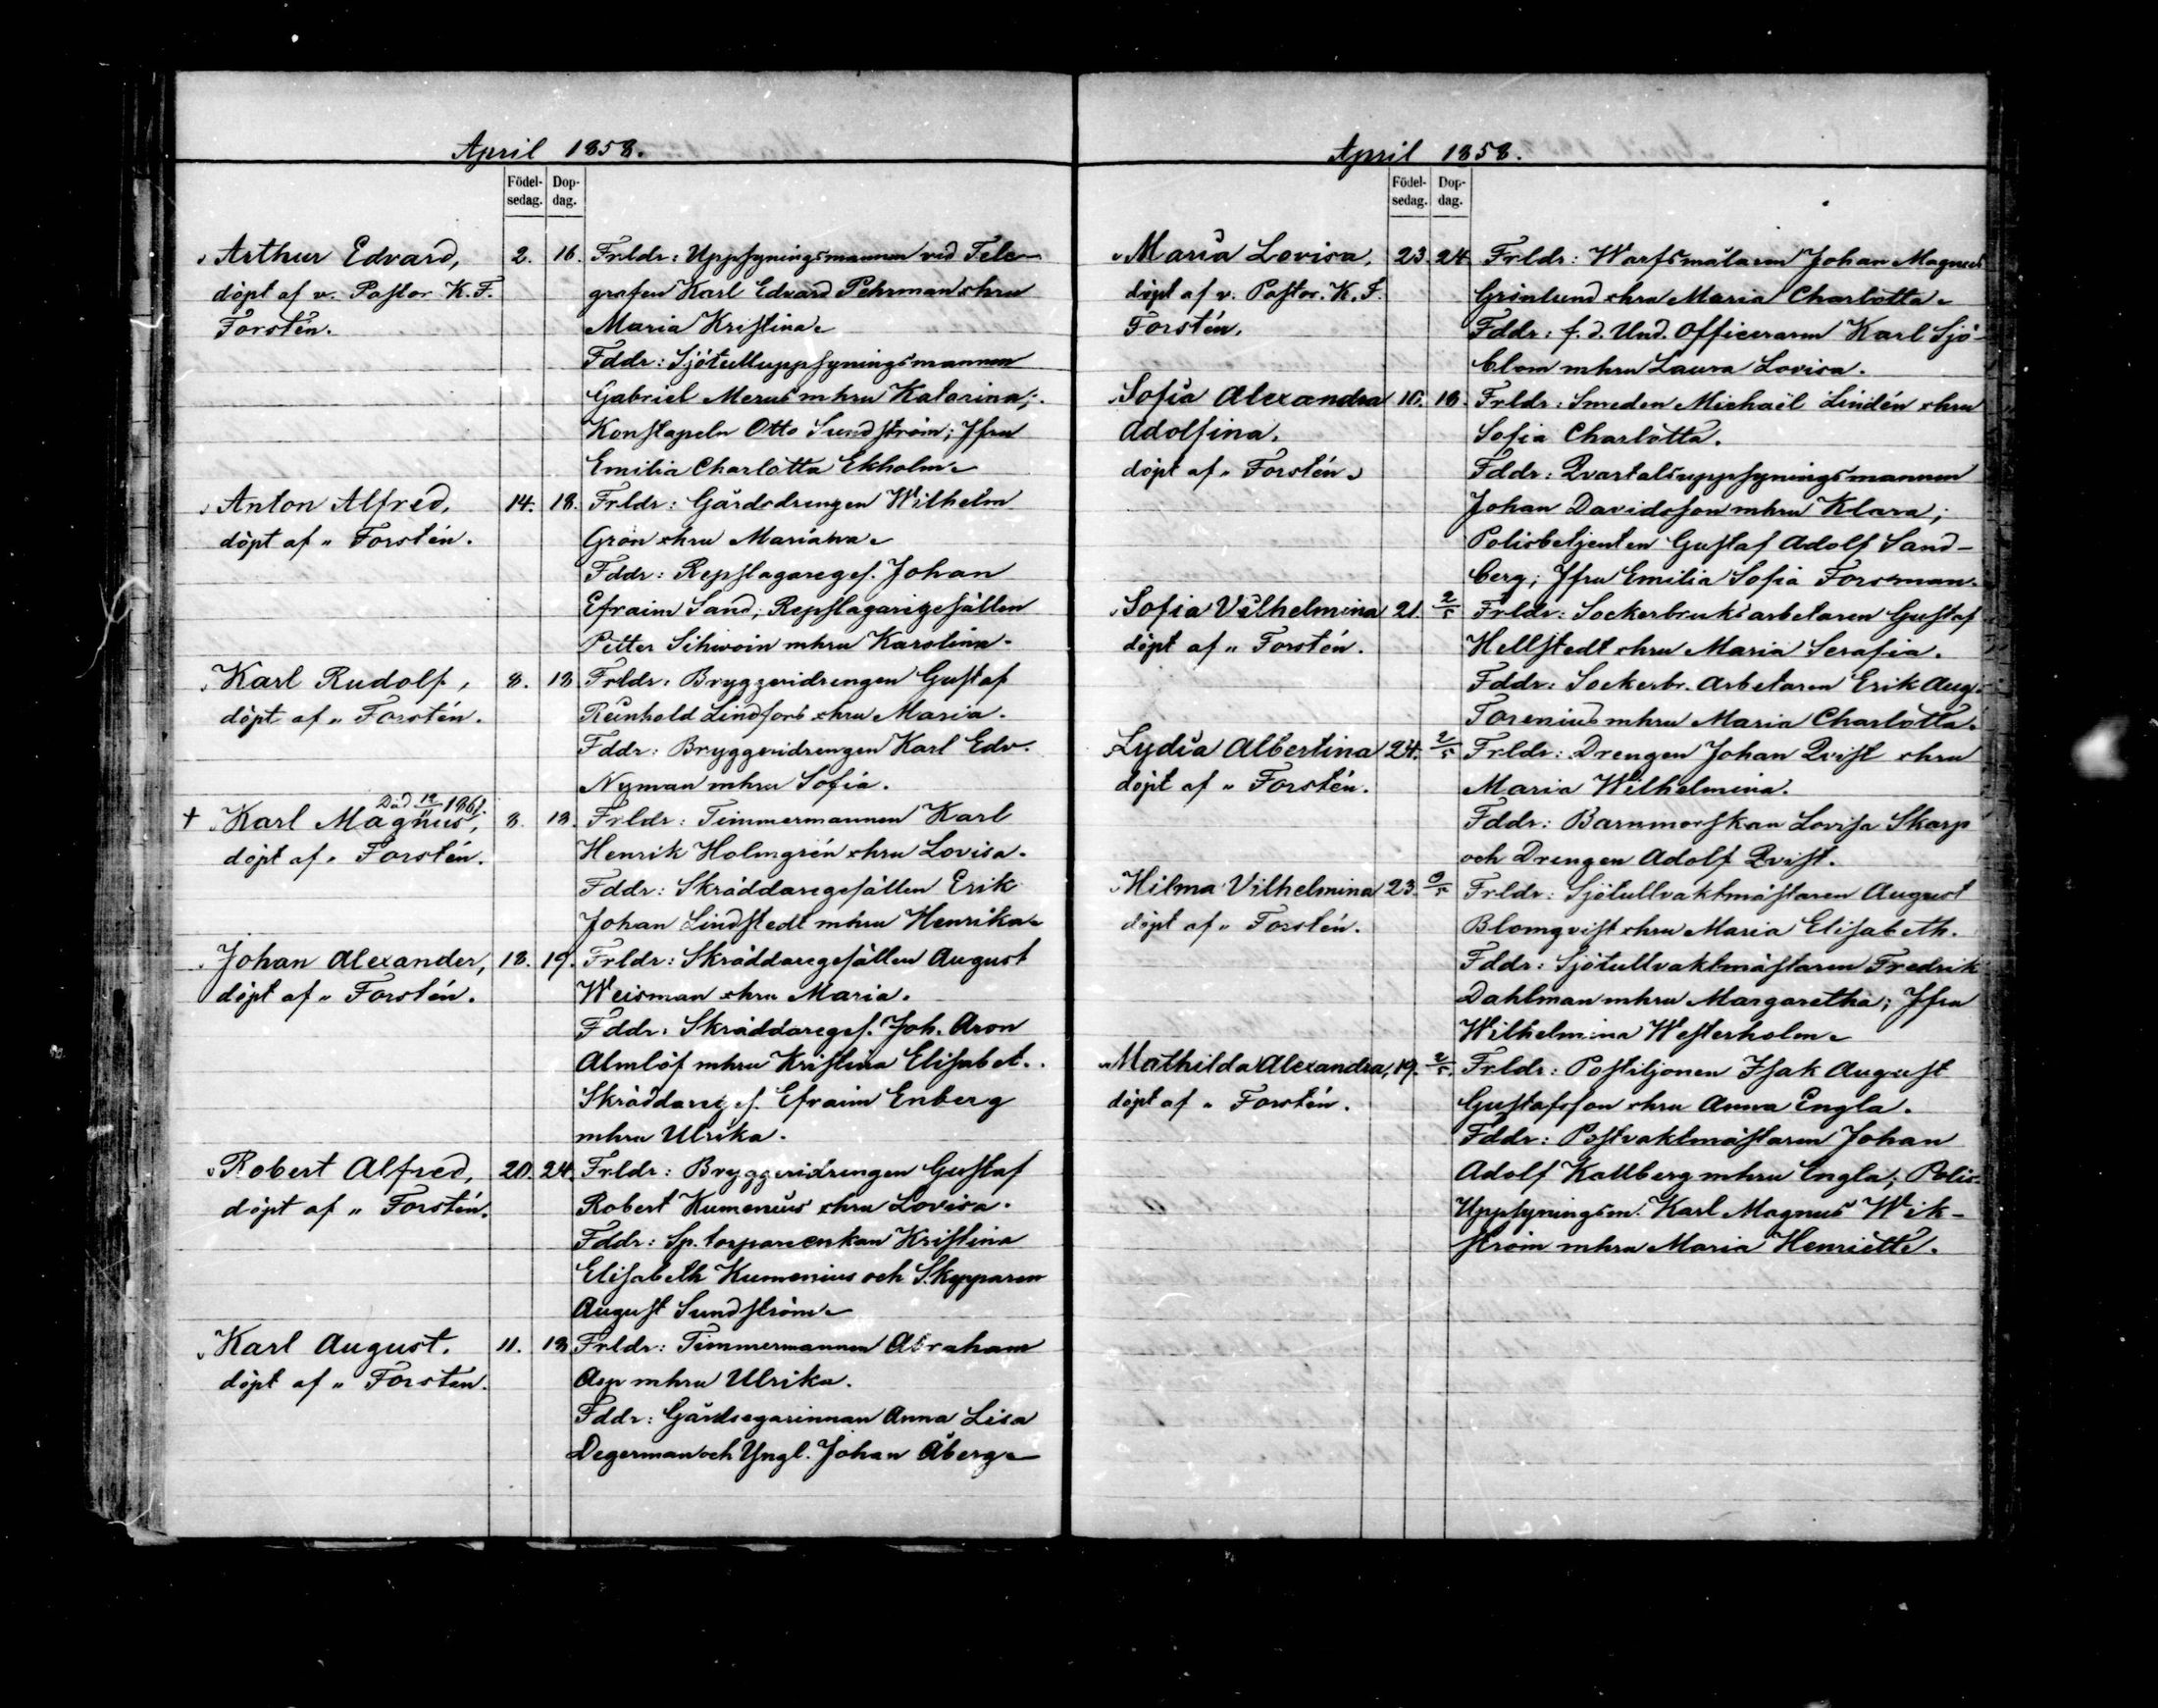 April 1858.
Födel-
sedag.
Dop-
dag.
Arthur Edvard,
döpt af v. Pastor K. F.
Forstén.
2. 16.
Frldr: Uppsyningsmannen vid Tele-
grafen Karl Edvard Pehrman o hru
Maria Kristina.
Fddr: Sjötulluppsyningsmannen
Gabriel Merus m hru Katarina;
Konstapeln Otto Sundström; Jfru
Emilia Charlotta Ekholm.
Anton Alfred,
döpt af „ Forstén.
14. 18.
Frldr: Gårdsdrengen Wilhelm
Grön o hru Mariana.
Fddr: Repslagareges. Johan
Efraim Sand; Repslagaregesällen
Petter Sihwoin m hru Karolina.
Karl Rudolf,
döpt af „ Forstén.
8. 18.
Frldr: Bryggeridrengen Gustaf
Reinhold Lindfors o hru Maria.
Fddr: Bryggeridrengen Karl Edv.
Nyman m hru Sofia.
Död 19/11 1861.
† Karl Magnus,
döpt af „ Forstén.
8. 18.
Frldr: Timmermannen Karl
Henrik Holmgrén o hru Lovisa.
Fddr: Skräddaregesällen Erik
Johan Lindstedt m hru Henrika.
Johan Alexander,
döpt af „ Forstén.
18. 19.
Frldr: Skräddaregesällen August
Weisman o hru Maria.
Fddr: Skräddareges. Joh. Aron
Almlöf m hru Kristina Elisabet.
Skräddareges. Efraim Enberg
m hru Ulrika.
Robert Alfred,
döpt af „ Forstén.
20. 24.
Frldr: Bryggeridrengen Gustaf
Robert Kumenius o hru Lovisa.
Fddr: Sp. torpareenkan Kristina
Elisabeth Kumenius och Skepparen
August Sundström.
Karl August.
döpt af „ Forstén.
11. 18
Frldr: Timmermannen Abraham
Asp m hru Ulrika.
Fddr: Gårdsegarinnan Anna Lisa
Degerman och Yngl. Johan Åberg.
April 1858.
Födel-
sedag.
Dop-
dag.
Maria Lovisa,
döpt af v. Pastor. K. F.
Forstén.
23. 24.
Frldr: Warfsmålaren Johan Magnus
Grönlund o hru Maria Charlotta.
Fddr: f. d. Und. Officeraren Karl Sjö-
blom m hru Laura Lovisa.
Sofia Alexandra
Adolfina,
döpt af „ Forstén.
16. 18.
Frldr: Smeden Michaël Lindén o hru
Sofia Charlotta.
Fddr: Qvartalsuppsyningsmannen
Johan Davidsson m hru Klara;
Polisbetjenten Gustaf Adolf Sand-
berg; Jfru Emilia Sofia Forsman.
Sofia Vilhelmina
döpt af „ Forstén.
21. 2/5
Frldr: Sockerbruksarbetaren Gustaf
Hellstedt o hru Maria Serafia.
Fddr: Sockerbr. Arbetaren Erik Aug.
Torenius m hru Maria Charlotta.
Lydia Albertina
döpt af „ Forstén.
24. 2/5
Frldr: Drengen Johan Qvist o hru
Maria Wilhelmina.
Fddr: Barnmorskan Lovisa Skarp
och Drengen Adolf Qvist.
Hilma Vilhelmina
döpt af „ Forstén.
23. 9/5
Frldr: Sjötullvaktmästaren August
Blomqvist o hru Maria Elisabeth.
Fddr: Sjötullvaktmästaren Fredrik
Dahlman m hru Margaretha; Jfru
Wilhelmina Westerholm.
Mathilda Alexandra,
döpt af „ Forstén.
19. 2/5.
Frldr: Postiljonen Isak August
Gustafsson o hru Anna Engla.
Fddr: Postvaktmästaren Johan
Adolf Kallberg m hru Engla; Polis-
Uppsyningsm. Karl Magnus Wik-
ström m hru Maria Henriette.